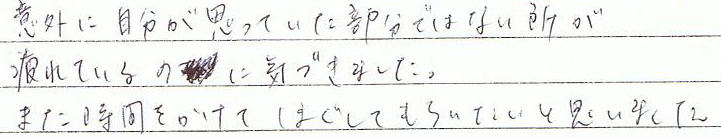 意外に自分が思っていた部分ではない所が
疲れているのに気づきました。
また時間をかけてほぐしてもらいたいと思いました